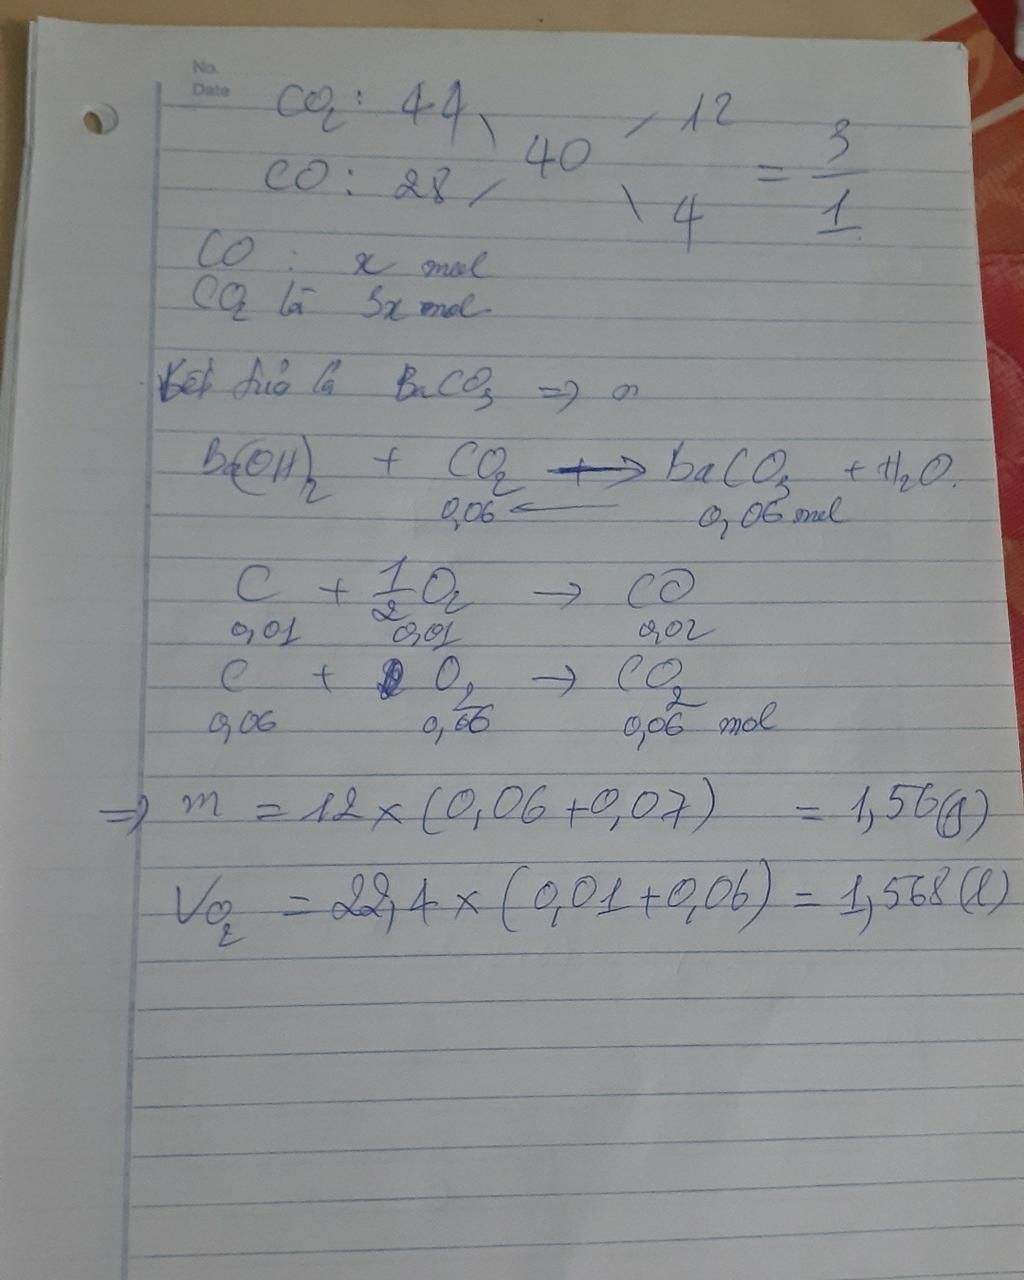 No.
Date
CO₂ : 44 \ 40 / 12 = 3/1
CO : 28 / \ 4
CO : x mol
CO₂ là 3x mol
Kết tủa là BaCO₃ =>
Ba(OH)₂ + CO₂ → BaCO₃ + H₂O.
0,06 ← 0,06 mol
C + 1/2 O₂ → CO
0,01 0,01 0,02
C + O₂ → CO₂
0,06 0,06 0,06 mol
=> m = 12 x (0,06 + 0,07) = 1,56 (g)
V O₂ = 22,4 x (0,01 + 0,06) = 1,568 (l)